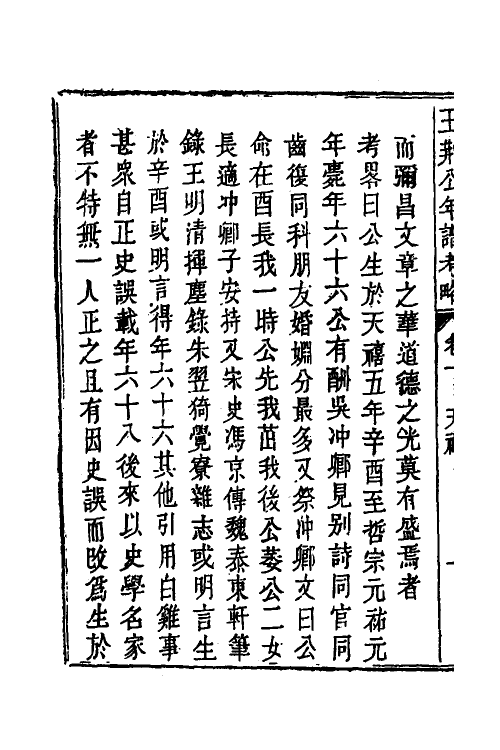 王荊公年譜考略
卷一
天禧
一
而彌昌文章之華道德之光莫有盛焉者
考畧曰公生於天禧五年辛酉至哲宗元祐元
年薨年六十六公有酬吳冲卿見别詩同官同
齒復同科朋友婚姻分最多又祭冲卿文曰公
命在酉長我一時公先我茁我後公萎公二女
長適冲卿子安持又宋史馮京傳魏泰東軒筆
錄王明清揮麈錄朱翌猗覺寮雜志或明言生
於辛酉或明言得年六十六其他引用白雞事
甚衆自正史誤載年六十八後來以史學名家
者不特無一人正之且有因史誤而改爲生於